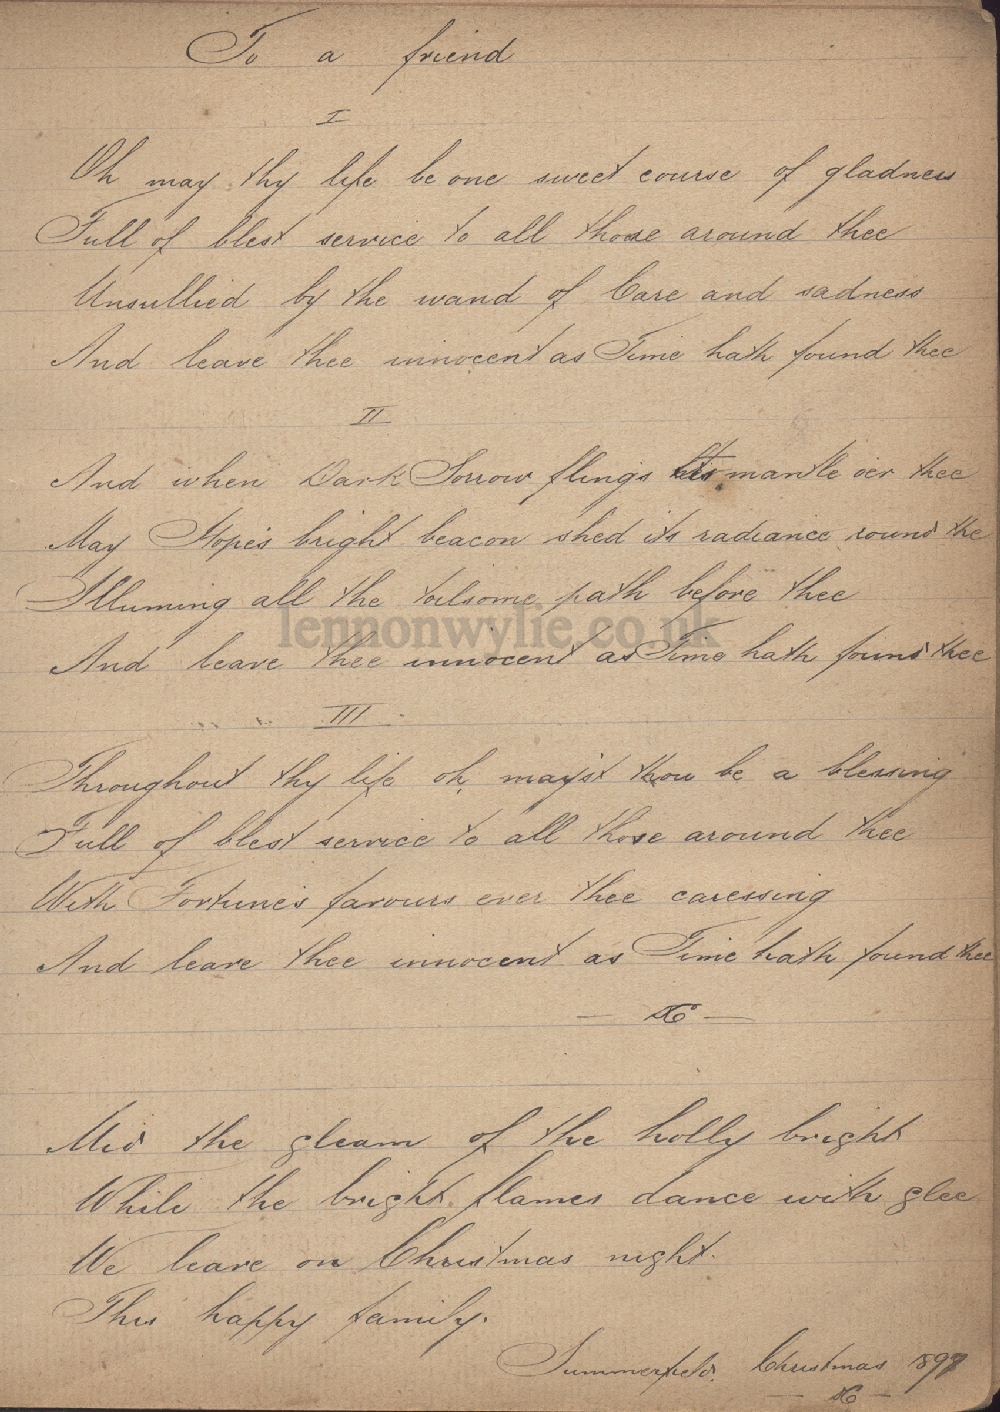 To a friend
I
Oh may thy life be one sweet course of gladness
Full of blest service to all those around thee
Unsullied by the wand of Care and sadness
And leave thee innocent as Time hath found thee
II
And when Dark Sorrow flings its mantle oer thee
May Hope's bright beacon shed its radiance round the
Illuming all the toilsome path before thee
lennonwylie.co.uk
And leave thee innocent as Time hath found thee
III
Throughout thy life oh, may'st thou be a blessing
Full of blest service to all those around thee
With Fortune's favours ever thee caressing
And leave thee innocent as Time hath found thee
Mid the gleam of the holly bright
While the bright flames dance with glee
We leave on Christmas night.
This happy family.
Summerfield, Christmas 1897